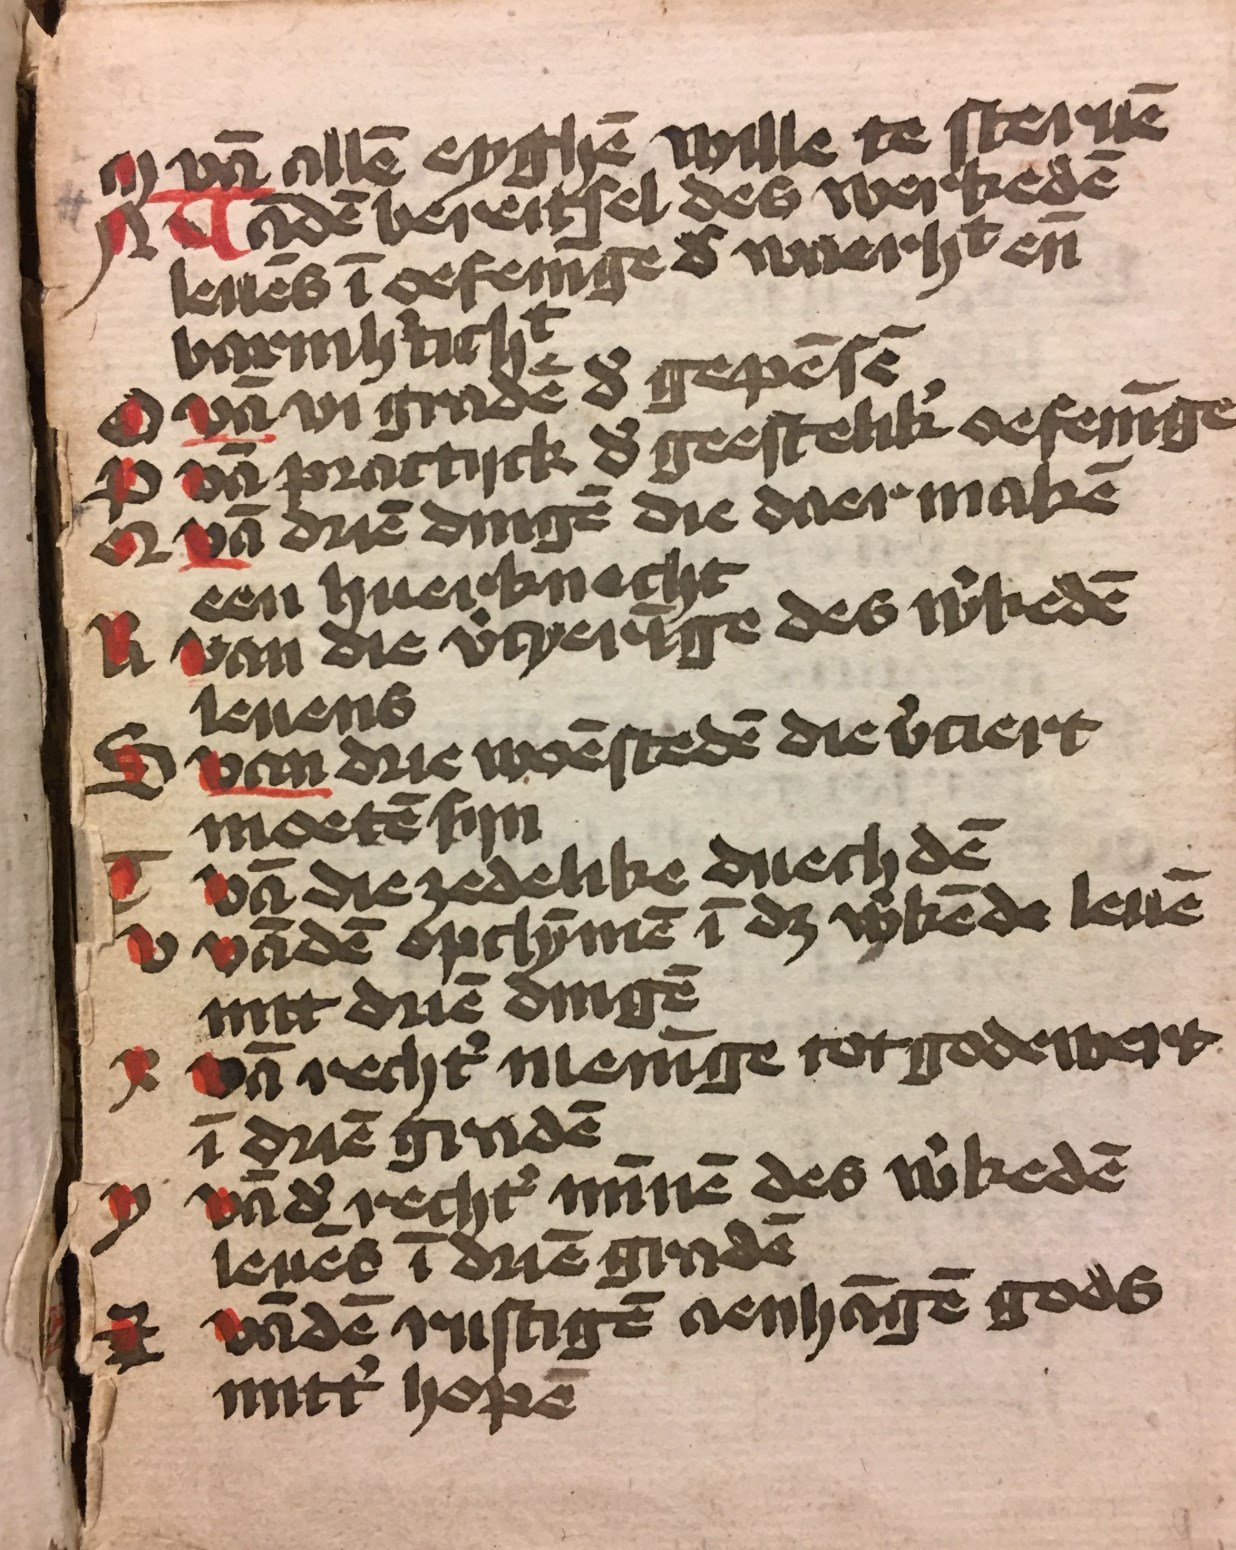 M vā allē eyghē wille te steruē
N Uādē bereitsel des werkedē
leuēs ī oefenīge d' waerh^t en̄
barmh'tich^t
O vā vi gradē d' gepēsē
P vā practijck d' geestelik' oefenīge
Q vā driē dingē die daer makē
een huerknecht
R van die v'cyerīge des w'kedē
leuens
S van drie woēstedē die v'ciert
moetē sijn
T vā die zedelike duechdē
V vādē opclȳmē ī dz w'kēde leuē
mit driē dingē
X vā recht' menīge tot godewert
ī driē gradē
Y vād' recht' mīnē des w'kedē
leuēs ī driē gradē
Z vādē rustigē aenhāgē gods
mitt' hopē